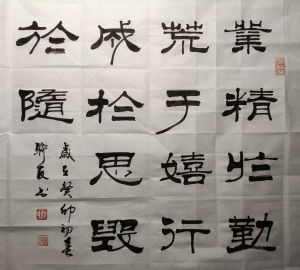 業精於勤
荒于嬉行
成於思毀
於隨
歲在癸卯初春
书